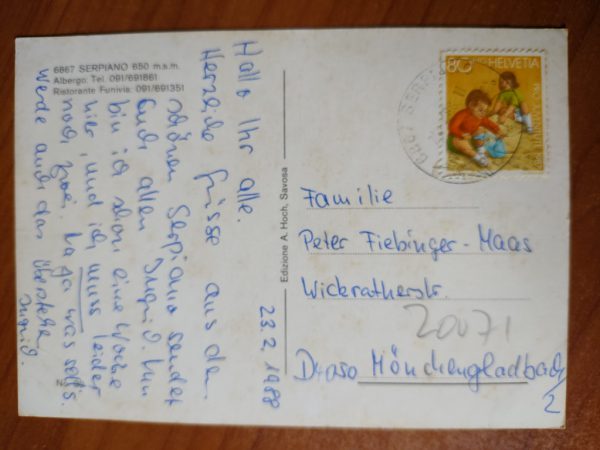 6867 SERPIANO 650 m.s.m.
Albergo: Tel. 091/691861
Ristorante Funivia: 091/691351
Hallo Ihr alle.
Herzliche Grüsse aus dem
schönen Serpiano sendet
Euch allen Ingrid. Nun
bin ich schon eine Woche
hier, und ich muss leider
noch zwei. Na ja was solls.
Werde auch das überstehen
Ingrid.
23.2.1988
Edizione A. Hoch, Savosa
80 HELVETIA
6867 SER
Familie
Peter Fiebinger-Maas
Wickratherstr.
20071
D-4050 Mönchengladbach
2